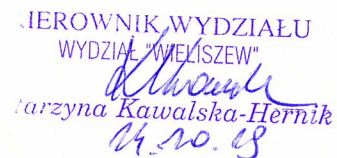 IEROWNIK WYDZIAŁU
WYDZIAŁ "WIELISZEW"
arzyna Kawalska-Hernik
14.10.19